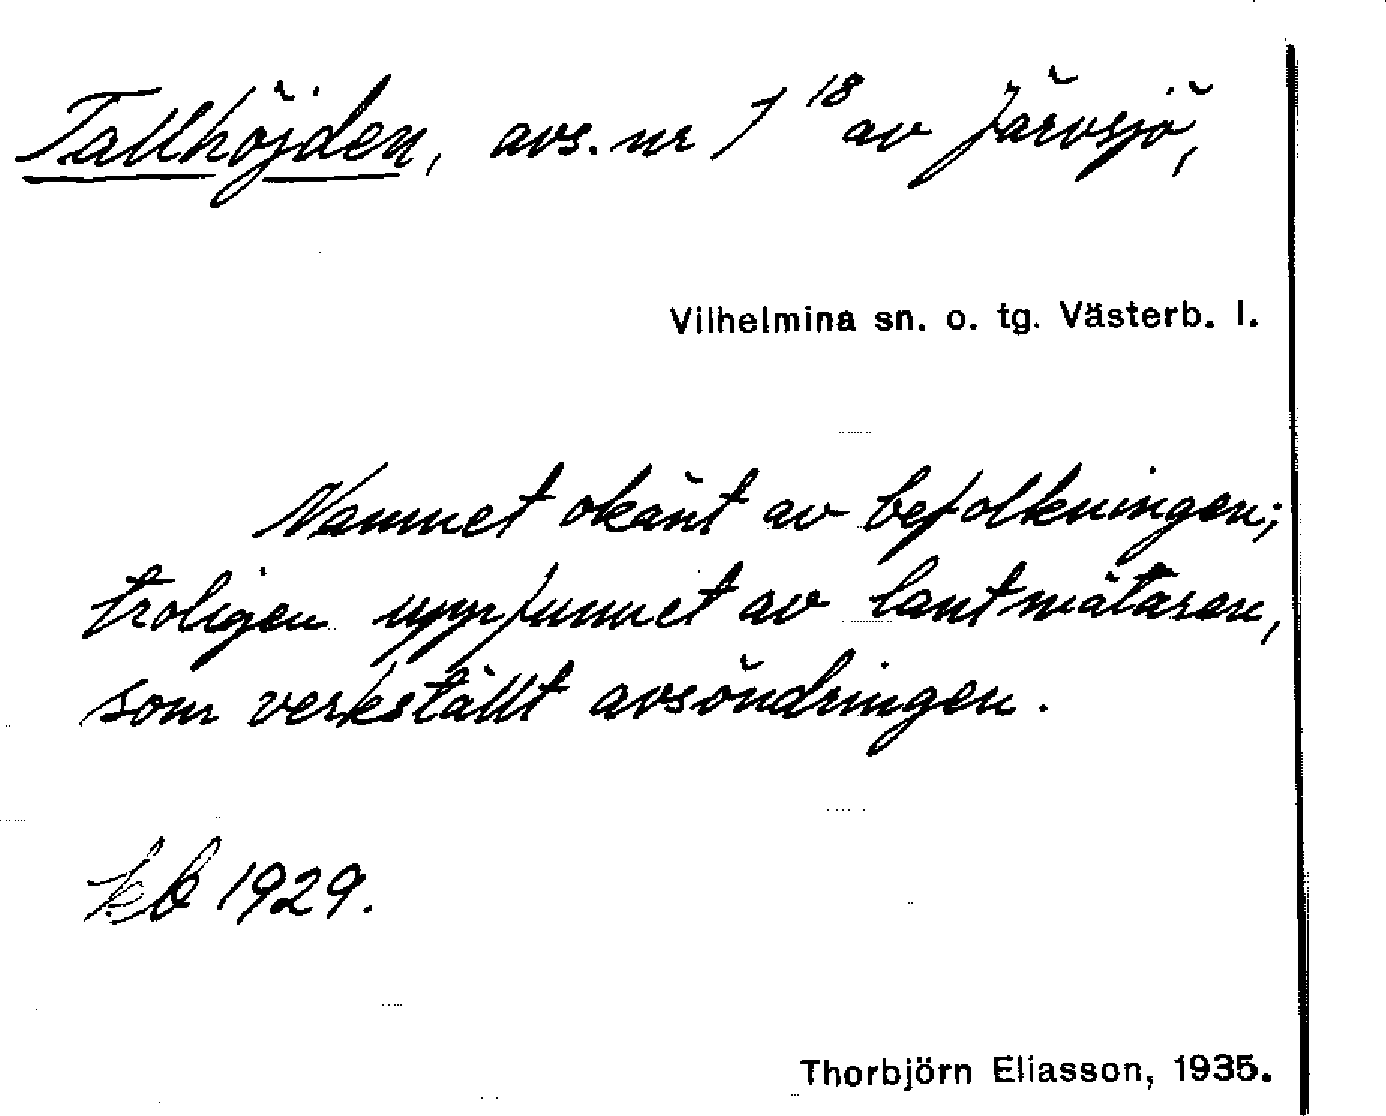 Tallhöjden, avs. nr 1¹⁸ av Järvsjö,
Vilhelmina sn. o. tg. Västerb. l.
Namnet okänt av befolkningen;
troligen uppfunnet av lantmätaren,
som verkställt avsöndringen.
kb 1929.
Thorbjörn Eliasson, 1935.